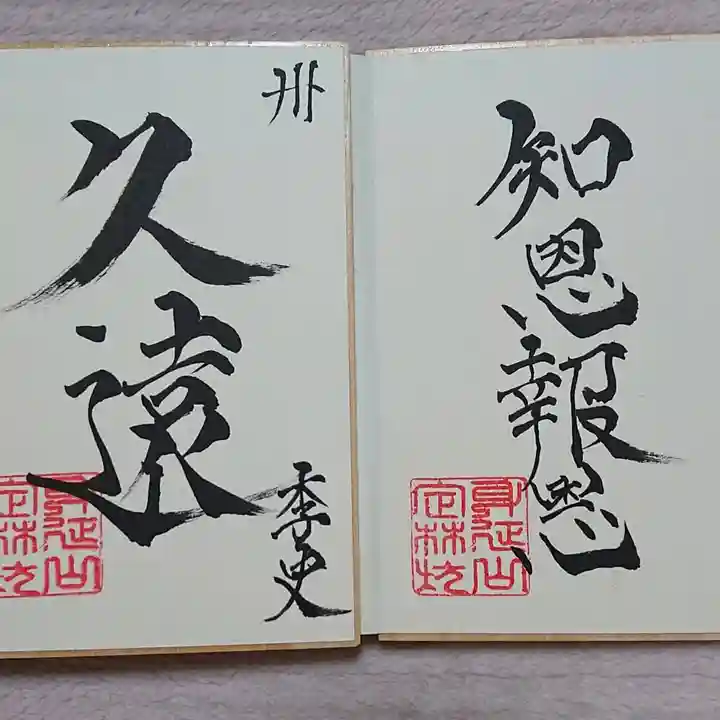 知恩報恩
身延山
定林坊
卅
久遠
季史
身延山
定林坊